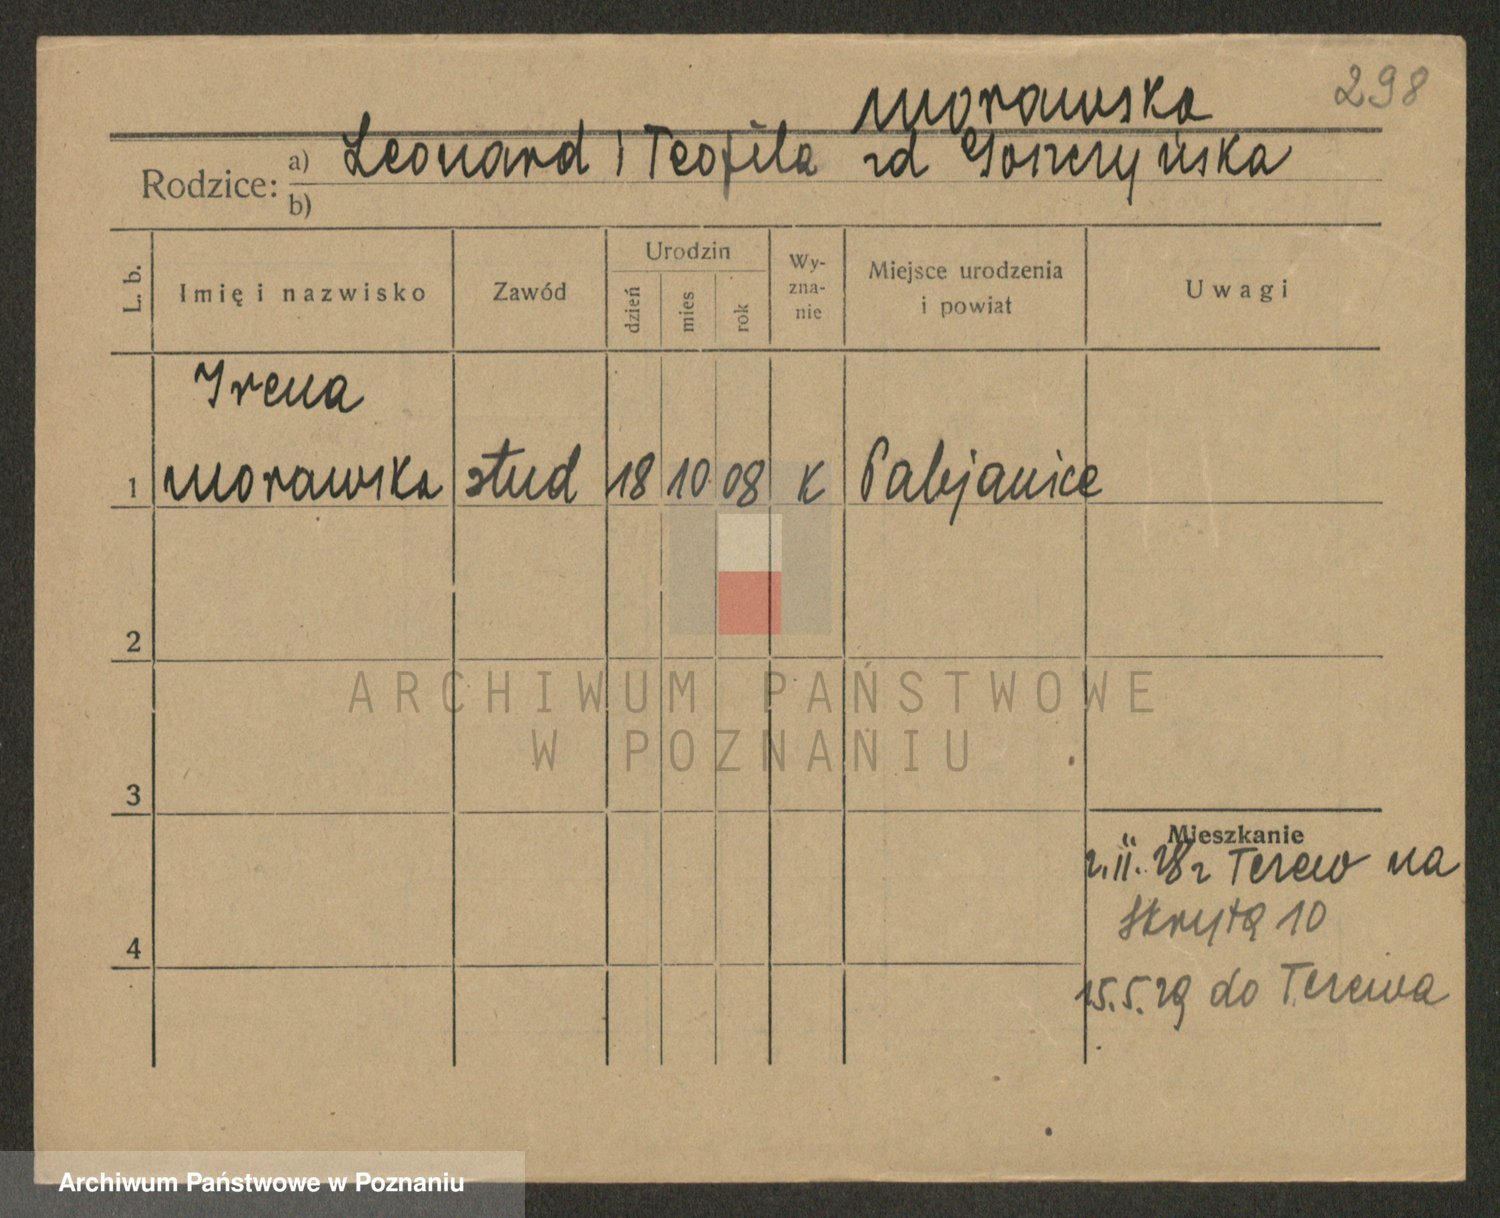 298
Morawska
Rodzice: a) Leonard i Teofila zd Goszczyńska
b)
L. b. Imię i nazwisko Zawód Urodzin dzień mies rok Wy-zna-nie Miejsce urodzenia i powiat Uwagi
Irena
1 Morawska stud 18 10 08 K Pabjanice
2
ARCHIWUM PAŃSTWOWE
W POZNANIU
3
Mieszkanie
2.II.28 z Terew na
4 Skrytą 10
15.5.29 do Terewa
Archiwum Państwowe w Poznaniu